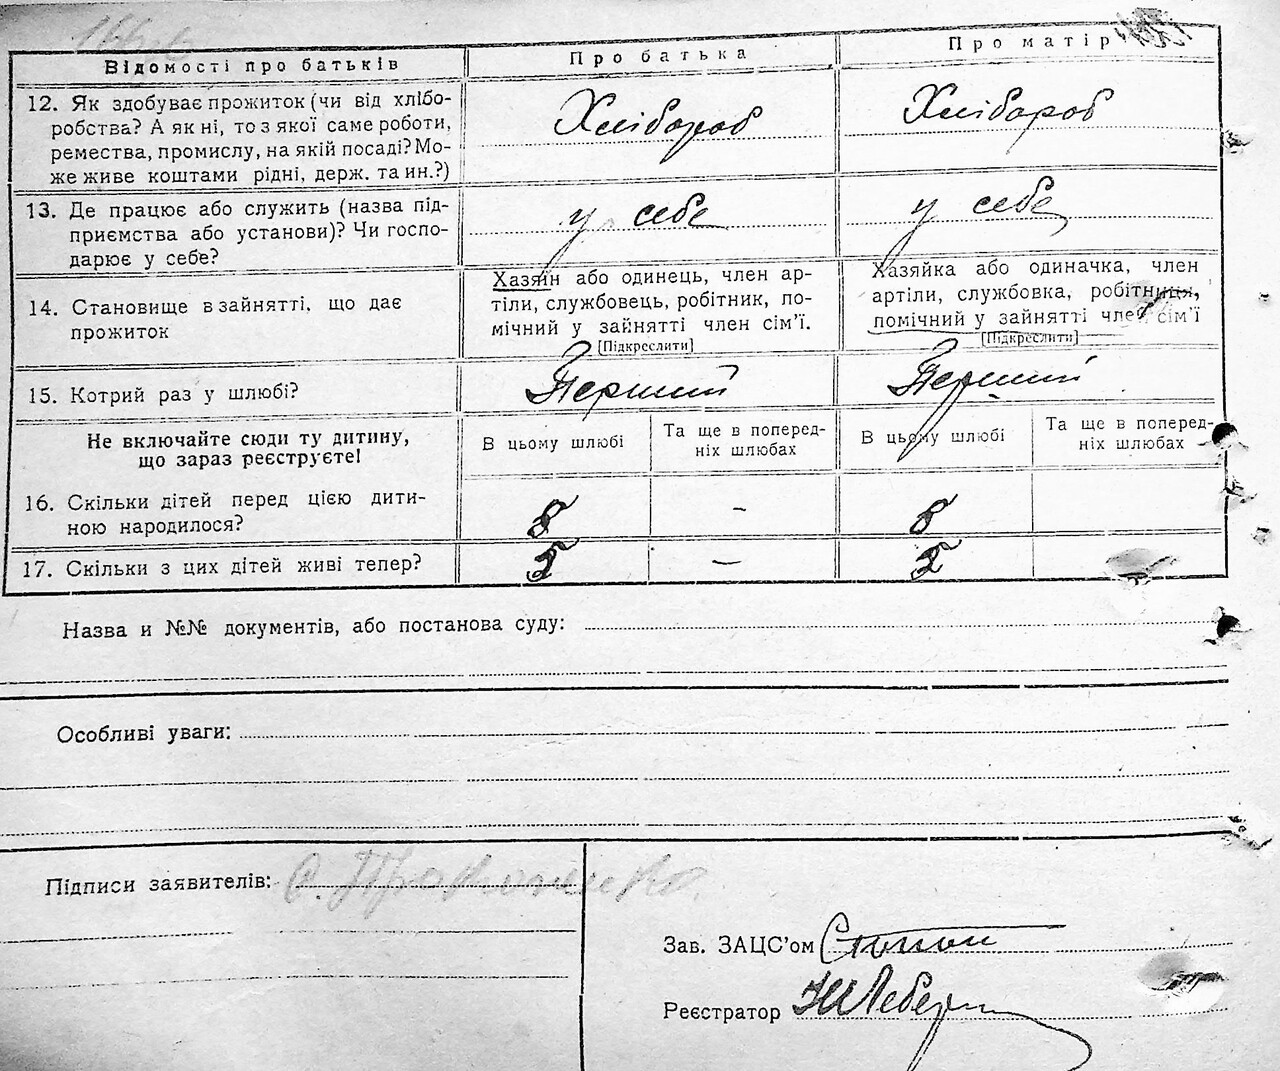 Відомості про батьків
Про батька
Про матір
12. Як здобуває прожиток (чи від хлібо-
робства? А як ні, то з якої саме роботи,
ремества, промислу, на якій посаді? Мо-
же живе коштами рідні, держ. та ин.?)
Хлібороб
Хлібороб
13. Де працює або служить (назва під-
приємства або установи)? Чи госпо-
дарює у себе?
у себе
у себе
14. Становище в зайнятті, що дає
прожиток
Хазяїн або одинець, член ар-
тіли, службовець, робітник, по-
мічний у зайнятті член сім'ї.
[Підкреслити]
Хазяйка або одиначка, член
артіли, службовка, робітниця,
помічний у зайнятті член сім'ї
[Підкреслити]
15. Котрий раз у шлюбі?
Перший
Перший
Не включайте сюди ту дитину,
що зараз реєструєте!
В цьому шлюбі
Та ще в поперед-
ніх шлюбах
В цьому шлюбі
Та ще в поперед-
ніх шлюбах
16. Скільки дітей перед цією дити-
ною народилося?
8
-
8
17. Скільки з цих дітей живі тепер?
5
-
5
Назва и №№ документів, або постанова суду:
Особливі уваги:
Підписи заявителів:
Зав. ЗАЦС'ом
Реєстратор